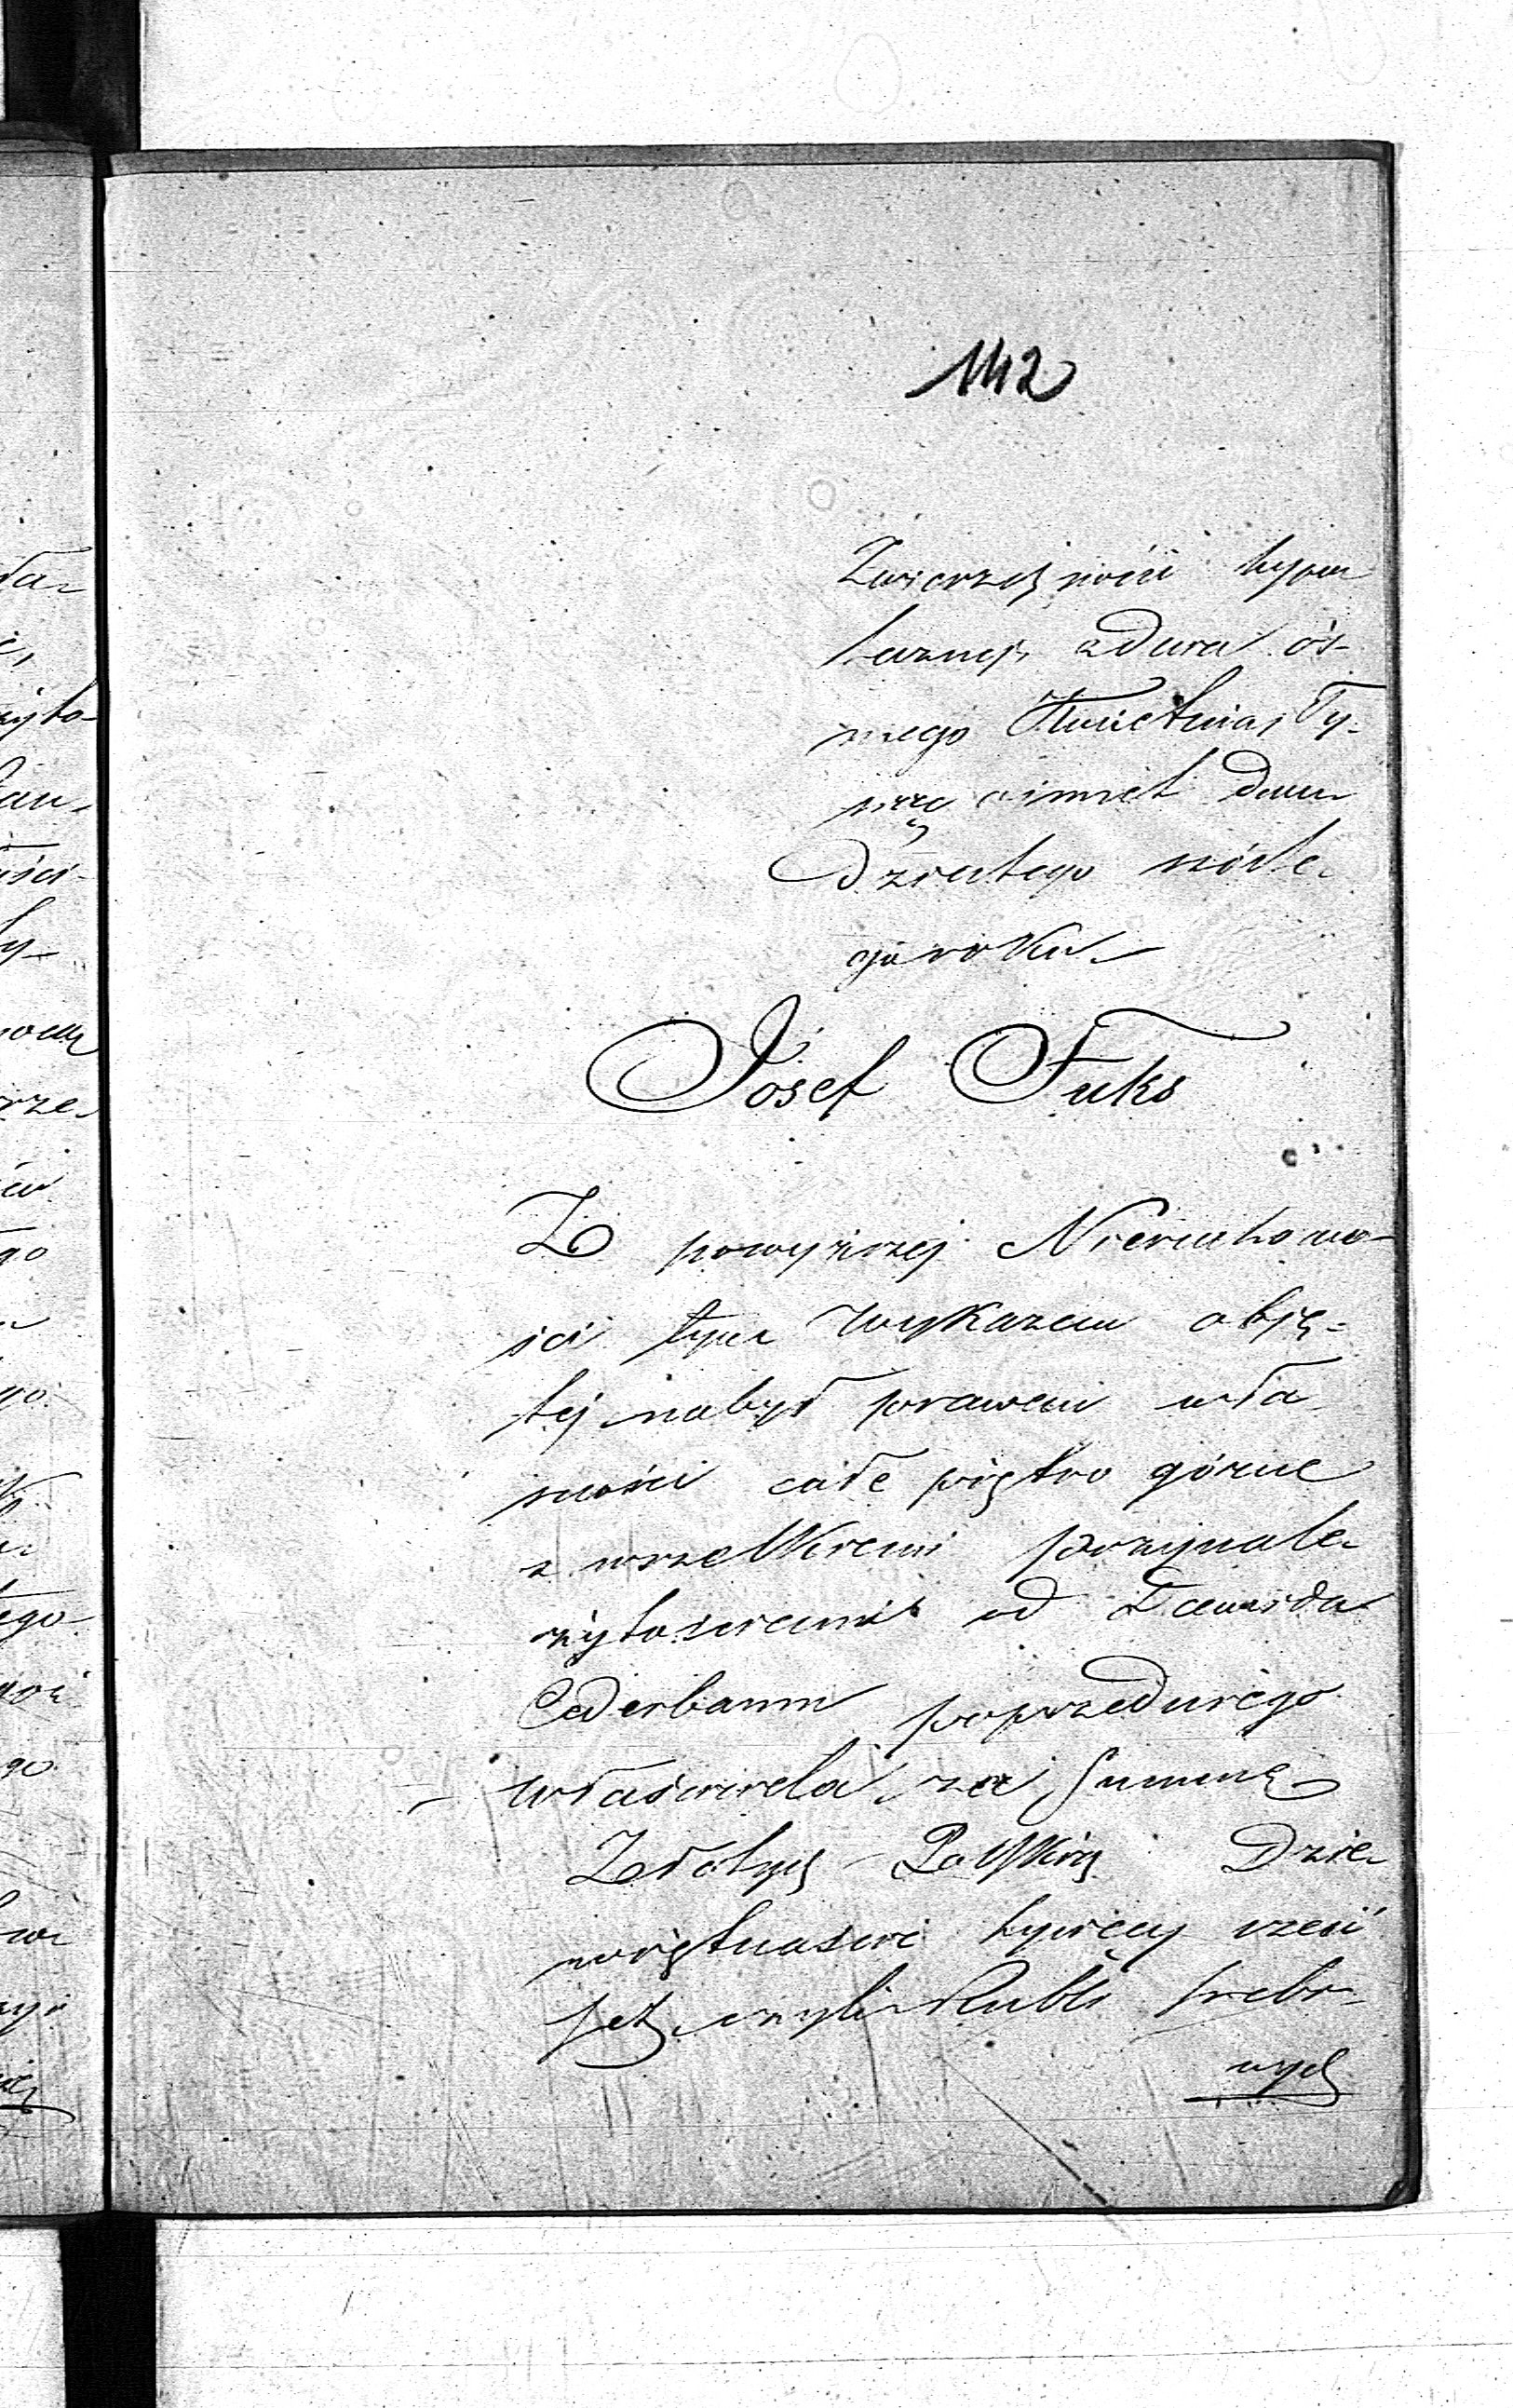 142
Zwierzchności hypo
tecznej z dnia ós-
mego Kwietnia, Ty-
siąc ośmset dwu
dziestego szóste
go roku
Josef Fuks
Z powyższej Nieruchomo-
ści tym wykazem obję-
tej nabył prawem wła
sności całe piętro górne
z wszelkiemi przynale
żytościami od Dawida
Cederbaum poprzedniego
właściciela, za Summę
Złotych Polskich Dzie
więtnaście tysięcy sześć
set czyli Rubli srebr
nych